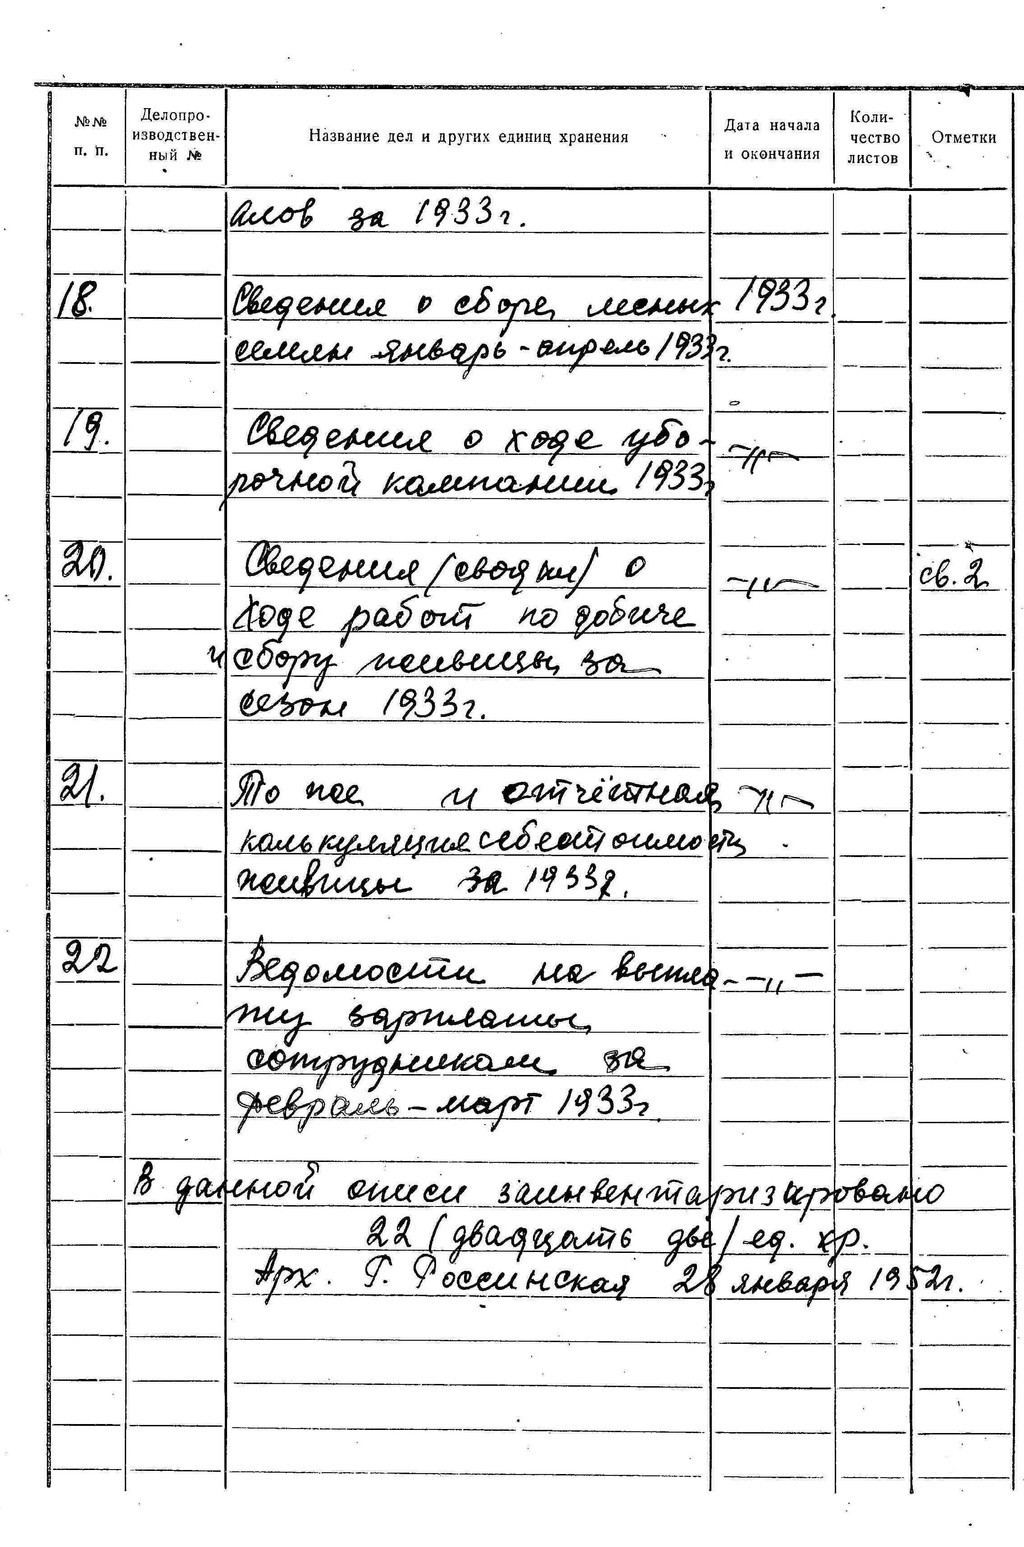 №№ п. п. Делопроизводствен-ный № Название дел и других единиц хранения Дата начала и окончания Коли-чество листов Отметки
алов за 1933г.
18. Сведения о сборе лесных 1933г.
семян январь-апрель 1933г.
19. Сведения о ходе убо- -"-
рочной кампании 1933г
20. Сведения /сводки/ о -"- св. 2
ходе работ по добыче
и сбору живицы за
сезон 1933г.
21. То же и отчётная -"-
калькуляция себестоимости
живицы за 1933г.
22 Ведомости на выпла- -"-
ту зарплаты
сотрудникам за
февраль-март 1933г.
В данной описи заинвентаризировано
22 /двадцать две/ ед. хр.
Арх. Г. Россинская 28 января 1952г.